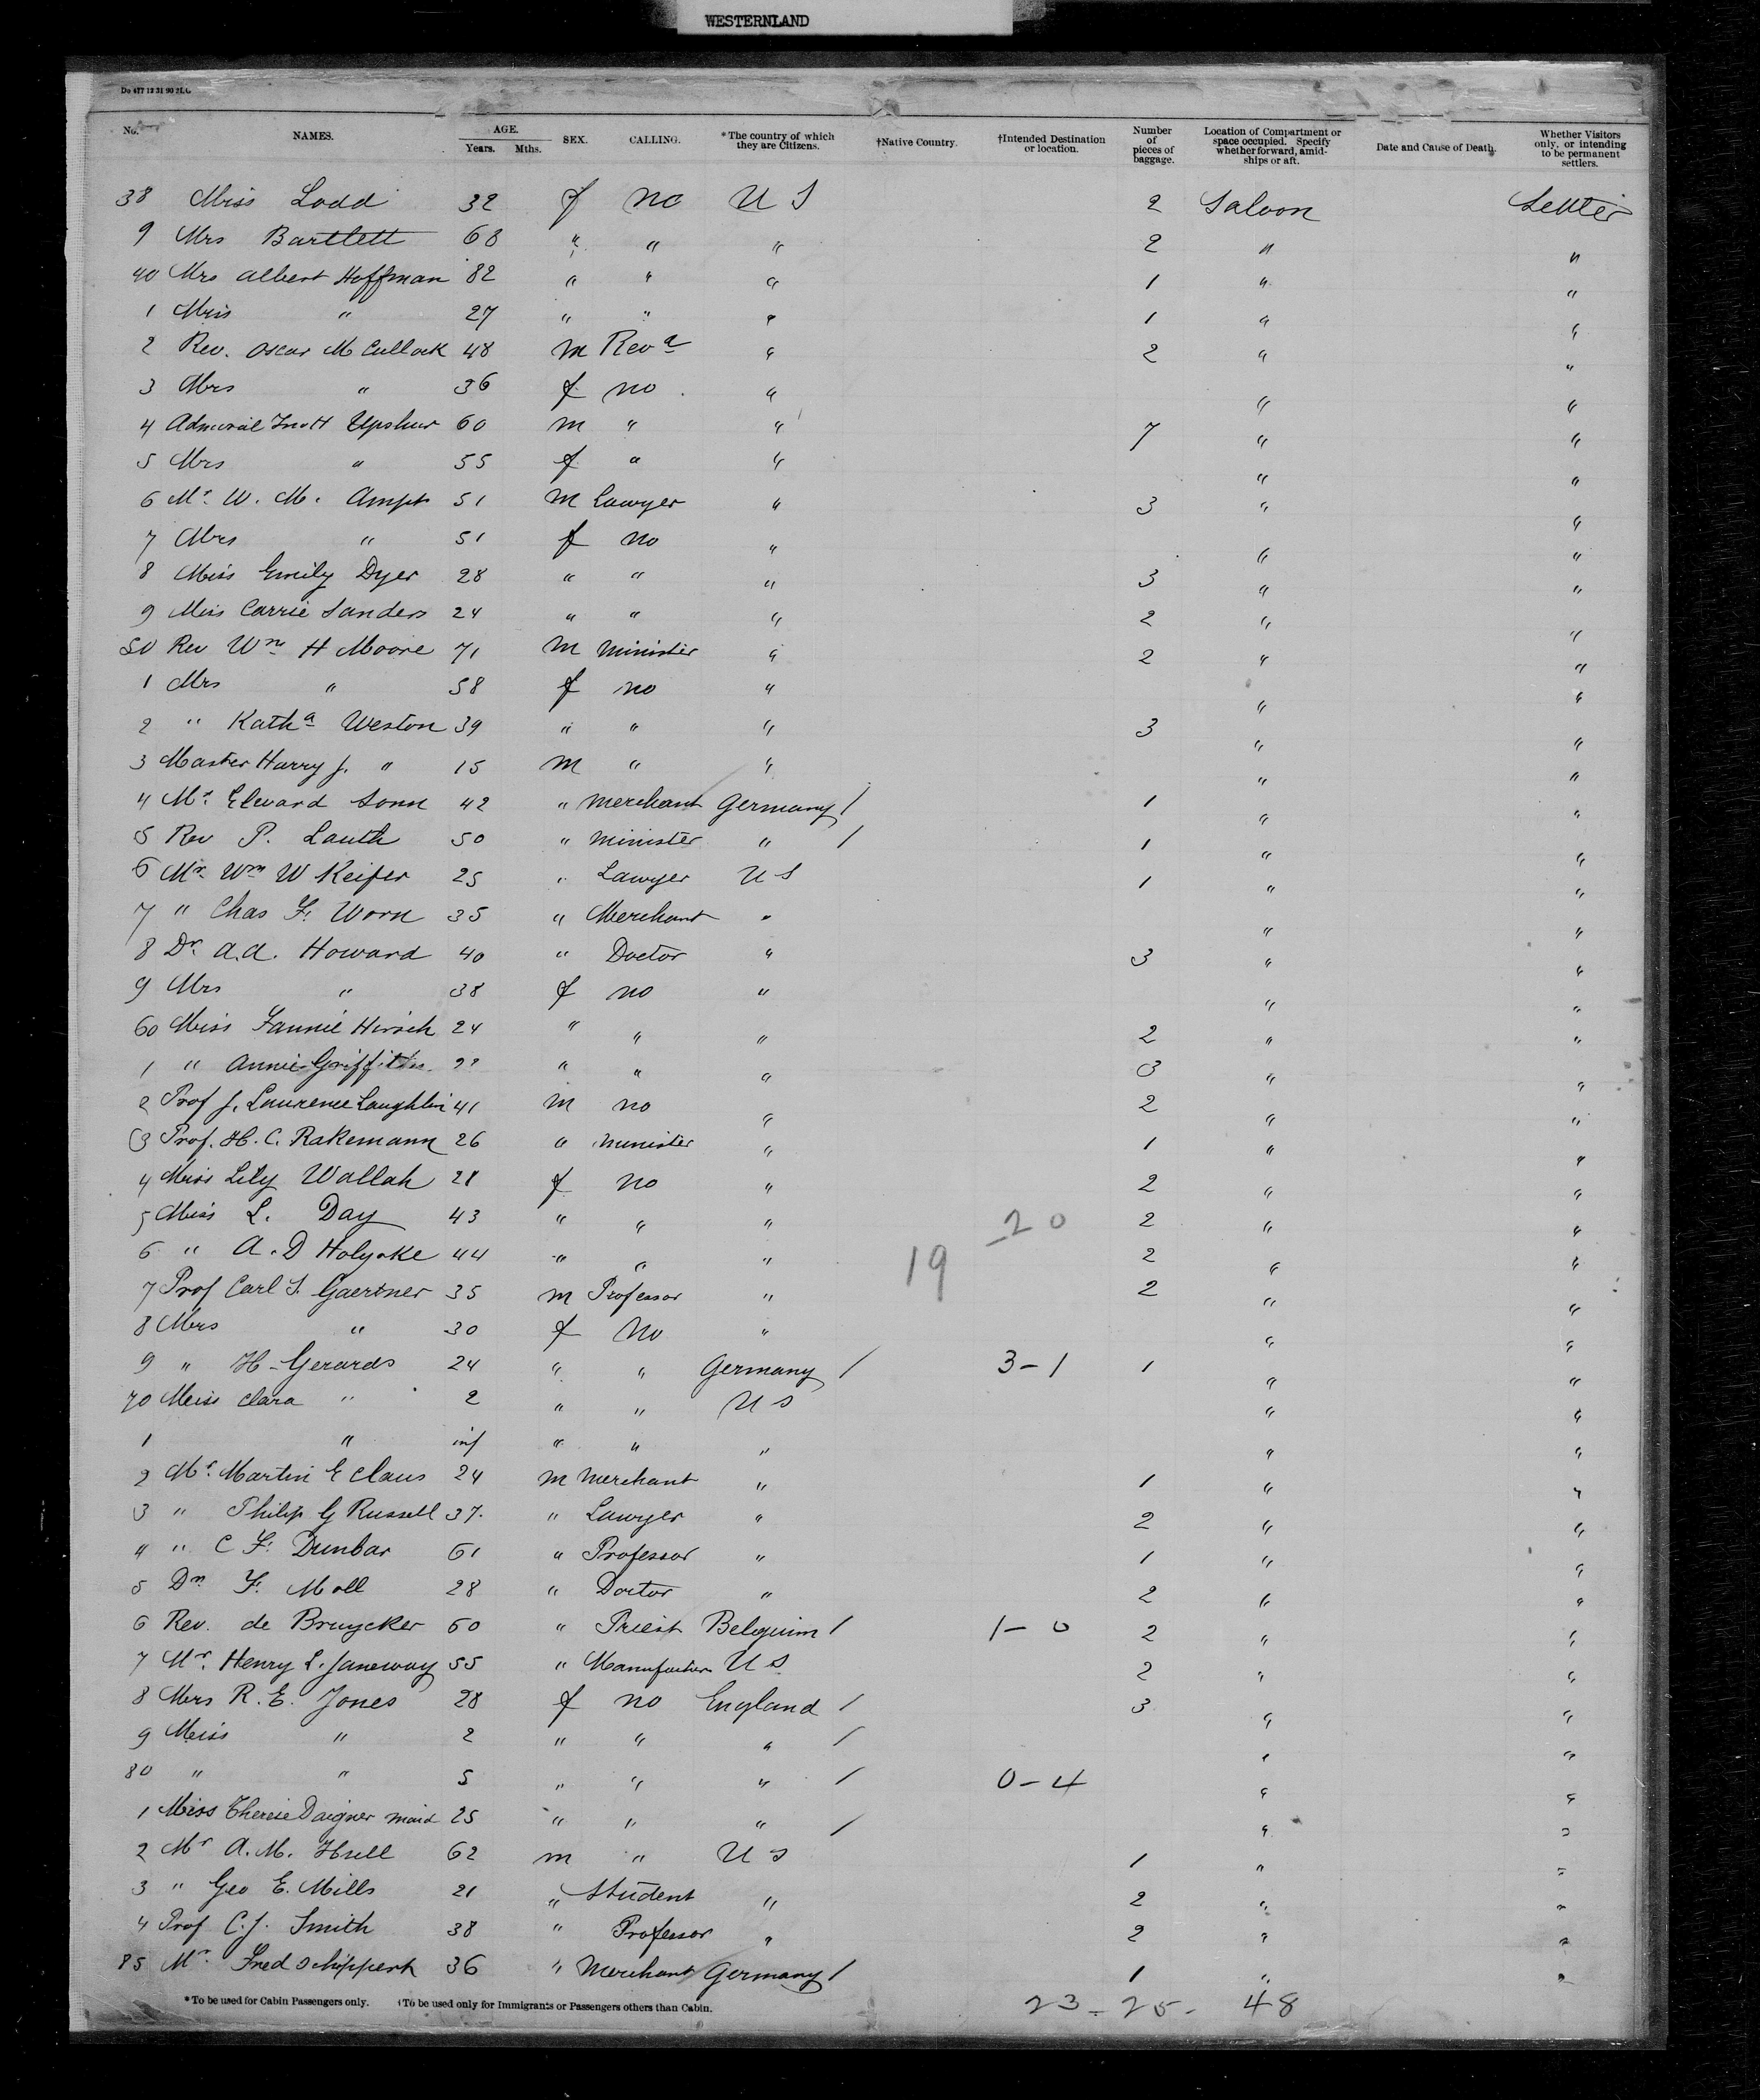 WESTERNLAND
No. NAMES. AGE. Years. Mths. SEX. CALLING. *The country of which they are Citizens. †Native Country. †Intended Destination or location. Number of pieces of baggage. Location of Compartment or space occupied. Specify whether forward, amidships or aft. Date and Cause of Death. Whether Visitors only, or intending to be permanent settlers.
38 Miss Ladd 32 f no U S 2 Saloon Settler
9 Mrs Bartlett 68 " " " 2 " "
40 Mrs Albert Hoffman 82 " " " 1 " "
1 Miss " 27 " " " 1 " "
2 Rev. Oscar McCullock 48 m Revd " 2 " "
3 Mrs " 36 f no " " "
4 Admiral Jno H Upshur 60 m " " 7 " "
5 Mrs " 55 f " " " "
6 Mr. W. M. Ampt 51 m Lawyer " 3 " "
7 Mrs " 51 f no " " "
8 Miss Emily Dyer 28 " " " 3 " "
9 Miss Carrie Sanders 24 " " " 2 " "
50 Rev Wm H Moore 71 m minister " 2 " "
1 Mrs " 58 f no " " "
2 " Katha Weston 39 " " " 3 " "
3 Master Harry J. " 15 m " " " "
4 Mr. Edward Sonn 42 " merchant Germany / 1 " "
5 Rev P. Lauth 50 " minister " / 1 " "
6 Mr. Wm W Keifer 25 " Lawyer U S 1 " "
7 " Chas F. Worn 35 " Merchant " " "
8 Dr. A.A. Howard 40 " Doctor " 3 " "
9 Mrs " 38 f no " " "
60 Miss Fannie Hirsch 24 " " " 2 " "
1 " Annie Griffiths " " " 3 " "
2 Prof J. Laurence Laughlin 41 m no " 2 " "
3 Prof. H. C. Rakemann 26 " minister " 1 " "
4 Miss Lily Wallah 28 f no " 2 " "
5 Miss L. Day 43 " " " 20 2 " "
6 " A. D Holyoke 44 " " " 19 2 " "
7 Prof Carl S. Gaertner 35 m Professor " 2 " "
8 Mrs " 30 f No " " "
9 " H. Gerards 24 " " Germany / 3-1 1 " "
70 Miss Clara " 2 " " U S " "
1 " inf " " " " "
2 Mr. Martin E Claus 24 m merchant " 1 " "
3 " Philip G Russell 37 " Lawyer " 2 " "
4 " C F. Dunbar 61 " Professor " 1 " "
5 Dr. F. Moll 28 " Doctor " 2 " "
6 Rev. de Bruycker 60 " Priest Belguim / 1-0 2 " "
7 Mr. Henry L. Janeway 55 " Manufacturer U S 2 " "
8 Mrs R. E. Jones 28 f no England / 3 " "
9 Miss " 2 " " " / " "
80 " " 5 " " " / 0-4 " "
1 Miss Therese Daigner maid 25 " " " / " "
2 Mr A. M. Hull 62 m " U S 1 " "
3 " Geo E. Mills 21 " Student " 2 " "
4 Prof C. J. Smith 38 " Professor " 2 " "
85 Mr. Fred Schippert 36 " Merchant Germany / 1 " "
*To be used for Cabin Passengers only. †To be used only for Immigrants or Passengers others than Cabin.
23 - 25 - 48